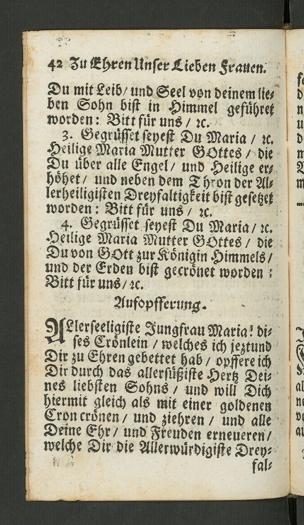 42 Zu Ehren Unser Lieben Frauen.
Du mit Leib / und Seel von deinem lie-
ben Sohn bist in Himmel geführet
worden: Bitt für uns / ꝛc.
3. Gegrüsset seyest Du Maria / ꝛc.
Heilige Maria Mutter GOttes / die
Du über alle Engel / und Heilige er-
höhet / und neben dem Thron der Al-
lerheiligisten Dreyfaltigkeit bist gesetzet
worden: Bitt für uns / ꝛc.
4. Gegrüsset seyest Du Maria / ꝛc.
Heilige Maria Mutter GOttes / die
Du von GOtt zur Königin Himmels /
und der Erden bist gecrönet worden:
Bitt für uns / ꝛc.
Aufopfferung.
ALlerseeligiste Jungfrau Maria! di-
ses Crönlein / welches ich jeztund
Dir zu Ehren gebettet hab / opffere ich
Dir durch das allersüßiste Hertz Dei-
nes liebsten Sohns / und will Dich
hiermit gleich als mit einer goldenen
Cron crönen / und ziehren / und alle
Deine Ehr / und Freuden erneueren /
welche Dir die Allerwürdigiste Drey-
fal-